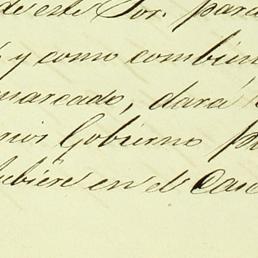 de este Sor. para
y como combien
marcado, dará
Gobierno
hubiere en el Caso